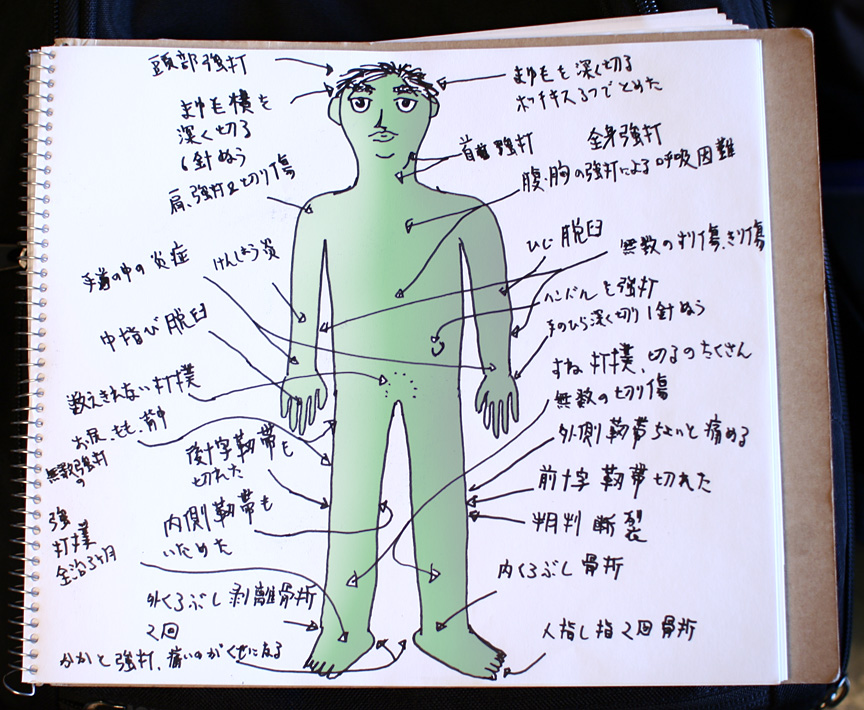 頭部強打
まゆ毛横を
深く切る
6針ぬう
肩、強打&切り傷
手首の中の炎症
けんしょう炎
中指び脱臼
数えきれない打撲
お尻、もも、背中
無数の強打
強
打撲
全治3ヶ月
後十字靭帯も
切れた
内側靭帯も
いためた
外くるぶし剥離骨折
2回
かかと強打、痛いのがくせになる
まゆ毛を深く切る
ホッチキス3つでとめた
強打
全身強打
腹・胸の強打による呼吸因難
ひじ脱臼
無数のすり傷、きり傷
ハンドルを強打
手のひら深く切り1針ぬう
すね打撲、切るのたくさん
無数の切り傷
外側靭帯ちょいと痛める
前十字靭帯切れた
半月判断裂
内くるぶし骨折
人指し指2回骨折